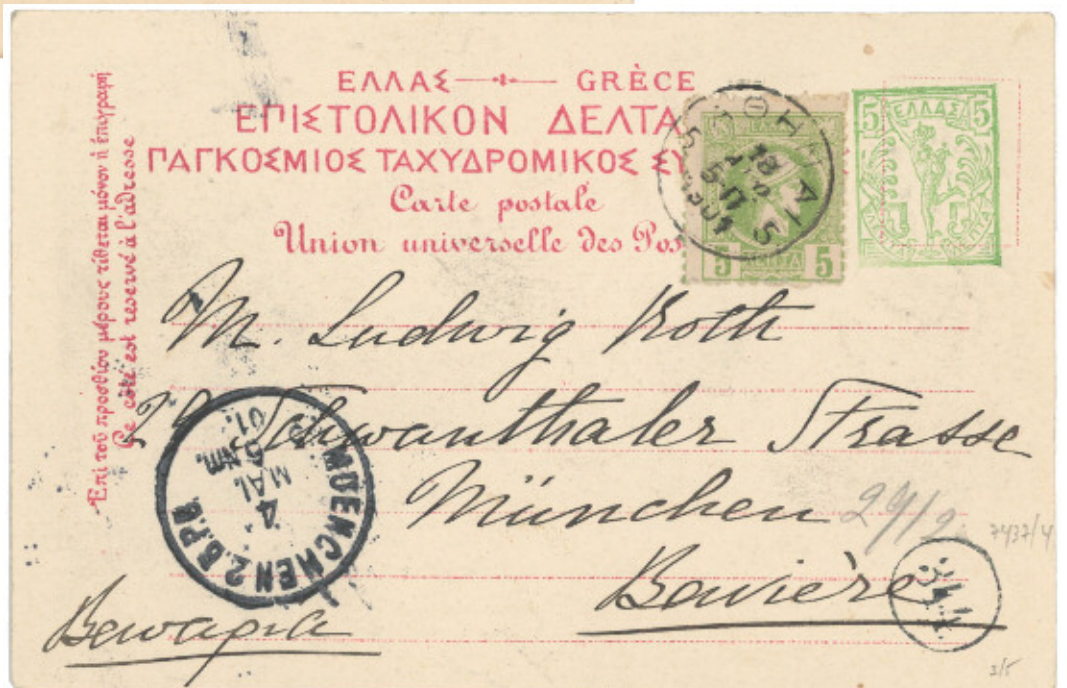 ΕΛΛΑΣ — GRÈCE
ΕΠΙΣΤΟΛΙΚΟΝ ΔΕΛΤΑ
ΠΑΓΚΟΣΜΙΟΣ ΤΑΧΥΔΡΟΜΙΚΟΣ ΣΥ
Carte postale
Union universelle des Pos
Ἐπὶ τοῦ προσθίου μέρους τίθεται μόνον ἡ ἐπιγραφή
Ce côté est réservé à l'adresse
5 ΕΛΛΑΣ 5
5 ΛΕΠΤΑ 5
18
1901
M. Ludwig Roth
Schwanthaler Strasse
München
Bavière
Βαυαρια
MUENCHEN 2 B.P.
4
MAI
5 NM.
01.
7437/4
2/5